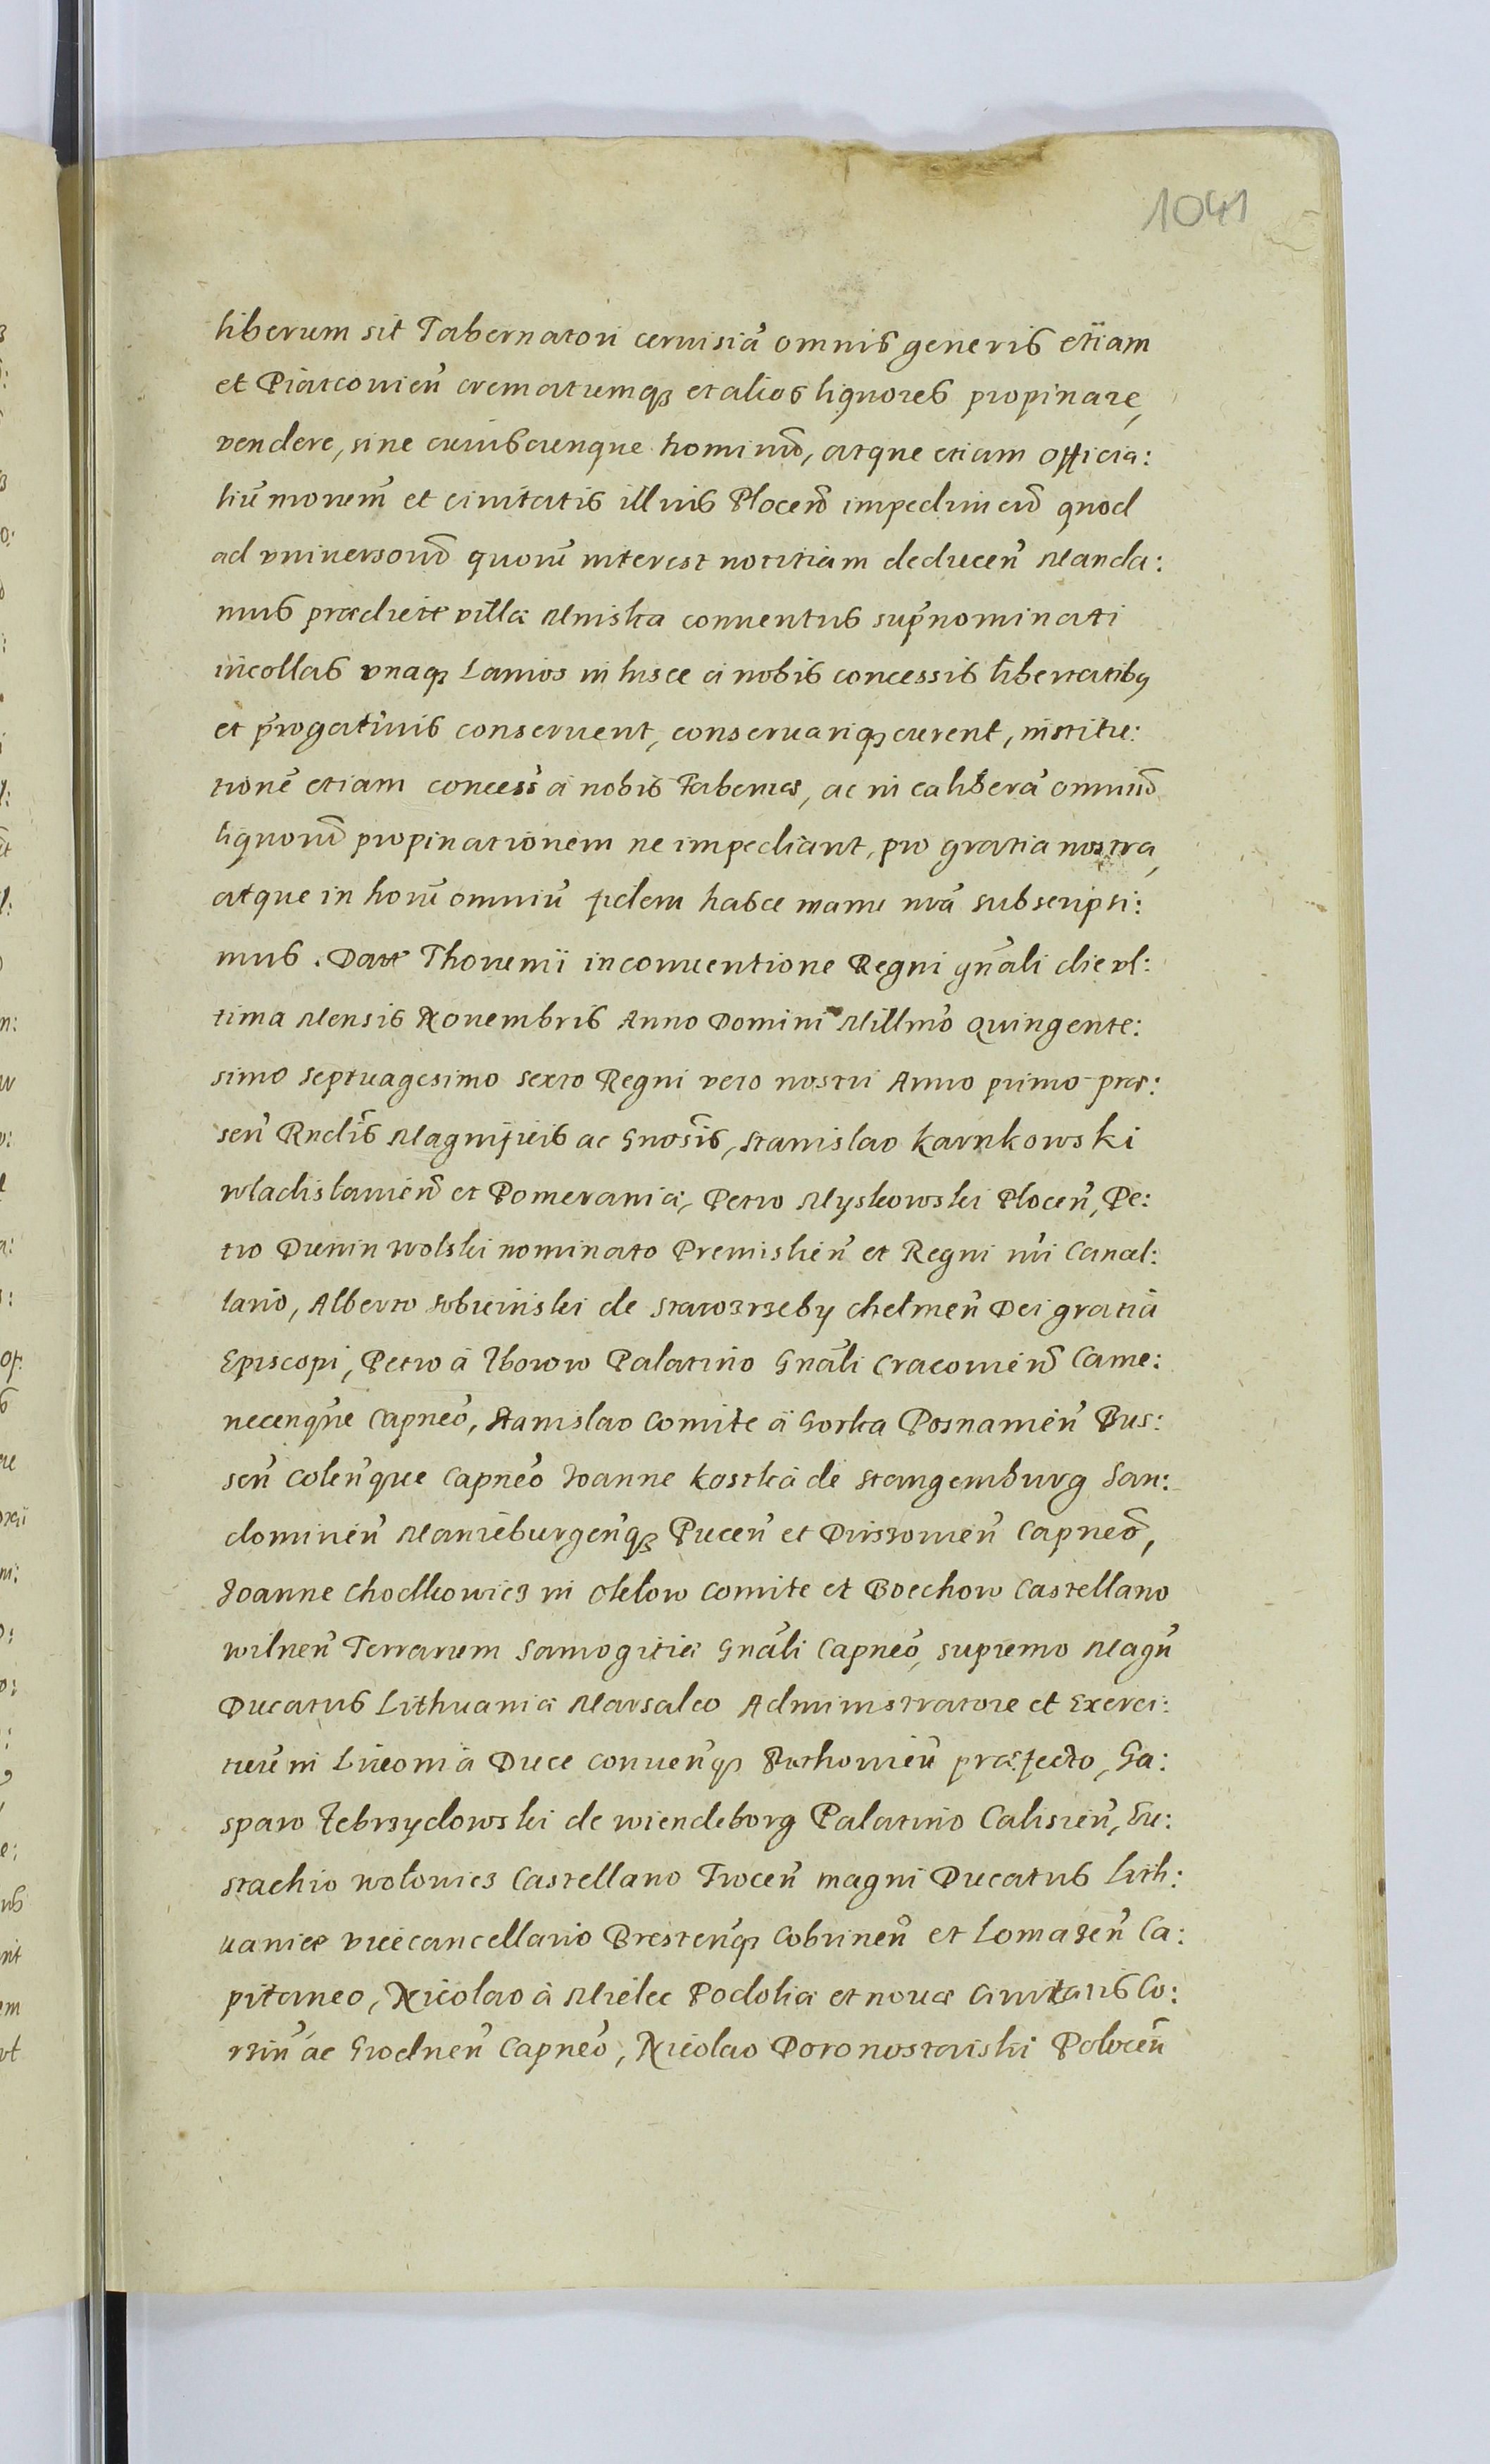 1041
liberum sit Tabernatori ceruisiã omnis generis etiam
et Piatcouieñ crematumq; et alios liquores propinare,
vendere, sine cuiuscunque hominũ, atque etiam officia:
liũ et ciuitatis illius Ploceñ impedimen̄ quod
ad vniuersorũ quorũ interest notitiam deduceñ Manda:
mus prædictæ villæ Mniska conuentus sup̃nominati
incollas vnaq; Lanios in hisce a nobis concessis libertatibq
et p̃rogatiuis conseruent, conseruariq; curent, institu:
tionẽ etiam concess̃ a nobis Tabernæ, ac in ea liberã omniũ
liquorũ propinationem ne impediant, pro gratia nostra,
atque in horũ omniũ fidem hasce manu nrã subscripsi:
mus. Datæ Thorunii in conuentione Regni gñali die vl:
tima Mensis Nouembris Anno Domini Millmõ Quingente:
simo Septuagesimo Sexto Regni vero nostri Anno primo præ:
señ Rndis̃ Magnificis ac Gnosis̃, Stanislao Karnkowski
wladislauieñ et Pomeraniæ, Petro Myskowski Ploceñ, Pe:
tro Dunin wolski nominato Premislieñ et Regni nrĩ Cancel:
lario, Alberto Sobieiuski de Starozrzeby chelmeñ Dei gratia
Episcopi, Petro à Zborow Palatino Gnãli Cracouieñ Came:
necenq̃ue Capneõ, Stanislao Comite à Gorka Posnanieñ Bus:
señ Coleñque Capneõ Joanne Kostka de Stangemburg San:
domirieñ Marieburgeñq; Puceñ et Dirszouieñ Capneõ,
Joanne Chodkowicz in Sklow Comite et Boechow Castellano
wilneñ Terrarum Samogitiæ Gnãli Capneõ, supremo Magñ
Ducatus Lithuaniæ Marsalco Administratore et Exerci:
tuũ in Liuonia Duce Conueñq; præfecto, Ga:
sparo Zebrzydowski de wiendeborg Palatino Calisieñ, Eu:
stachio wołouicz Castellano Troceñ magni Ducatus Lith:
uaniæ vicecancellario Bresteñq; Cobrineñ et Lomazeñ Ca:
pitaneo, Nicolao à Mielec Podoliæ et nouæ Ciuitatis Co:
rziñ ac Grodneñ Capneõ, Nicolao Doronostaiski Poloceñ